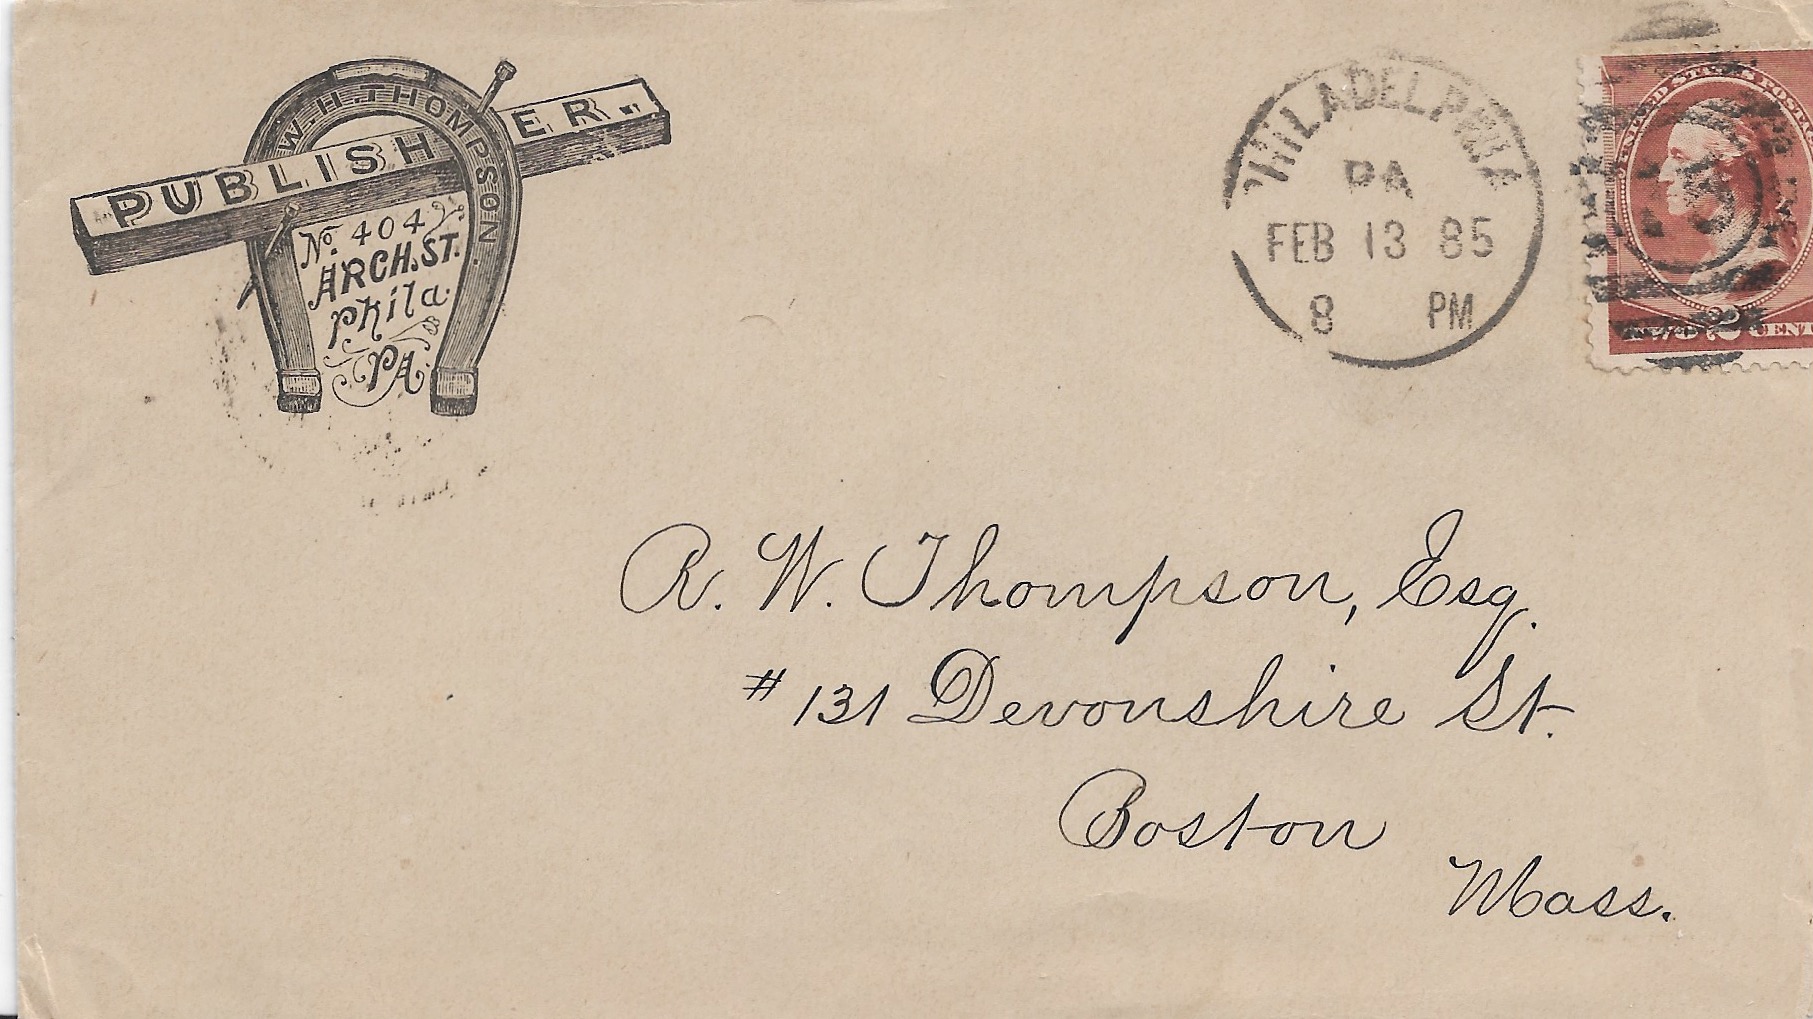 W. H. THOMPSON.
PUBLISHER.
No. 404
ARCH. ST.
Phila.
PA.
PHILADELPHIA
PA
FEB 13 85
8 PM
UNITED STATES POSTAGE
2 CENTS
R. W. Thompson, Esq.
# 131 Devonshire St.
Boston
Mass.